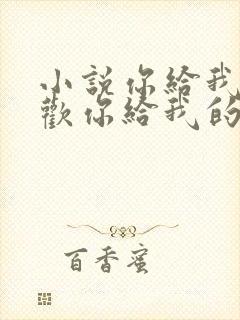 小說你給我
歡你給我的
百香蜜